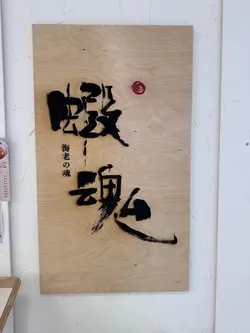 蝦
海老の魂
魂